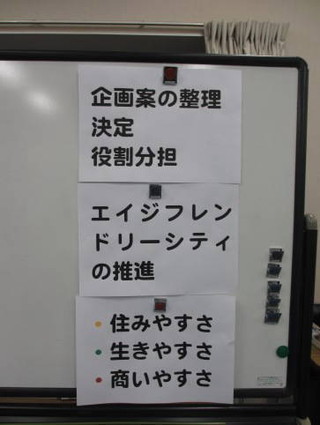 企画案の整理
決定
役割分担
エイジフレン
ドリーシティ
の推進
・住みやすさ
・生きやすさ
・商いやすさ